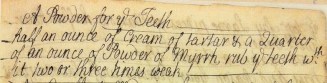 A Powder for yᵉ Teeth
half an ounce of Cream of tartar & a Quarter
of an ounce of Powder of Myrrh, rub yᵉ teeth wᵗʰ
it two or three times a week